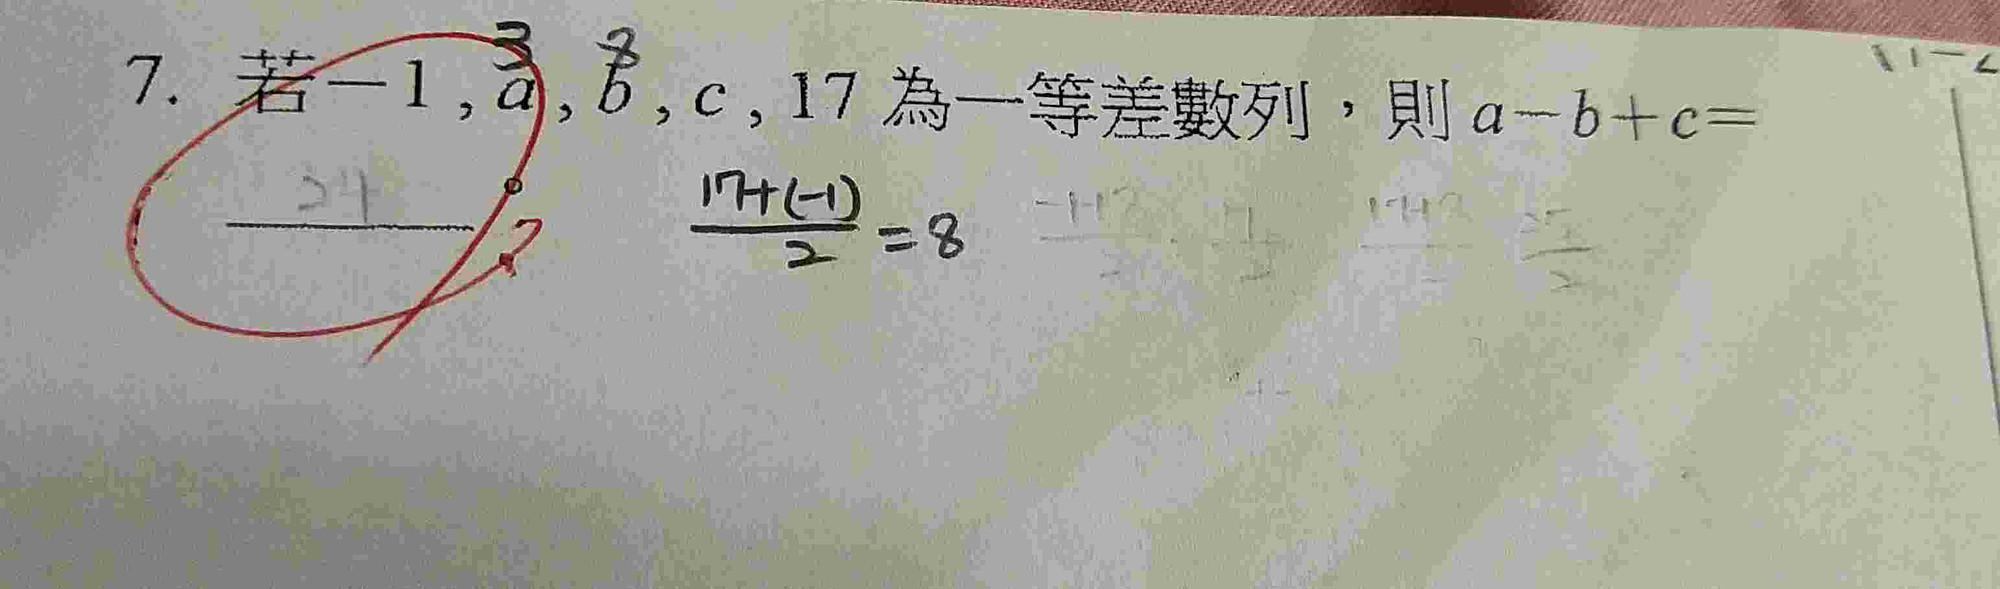 3 8
7. 若－1 , a , b , c , 17 為一等差數列，則 a－b＋c＝
24
17+(-1)
2
= 8